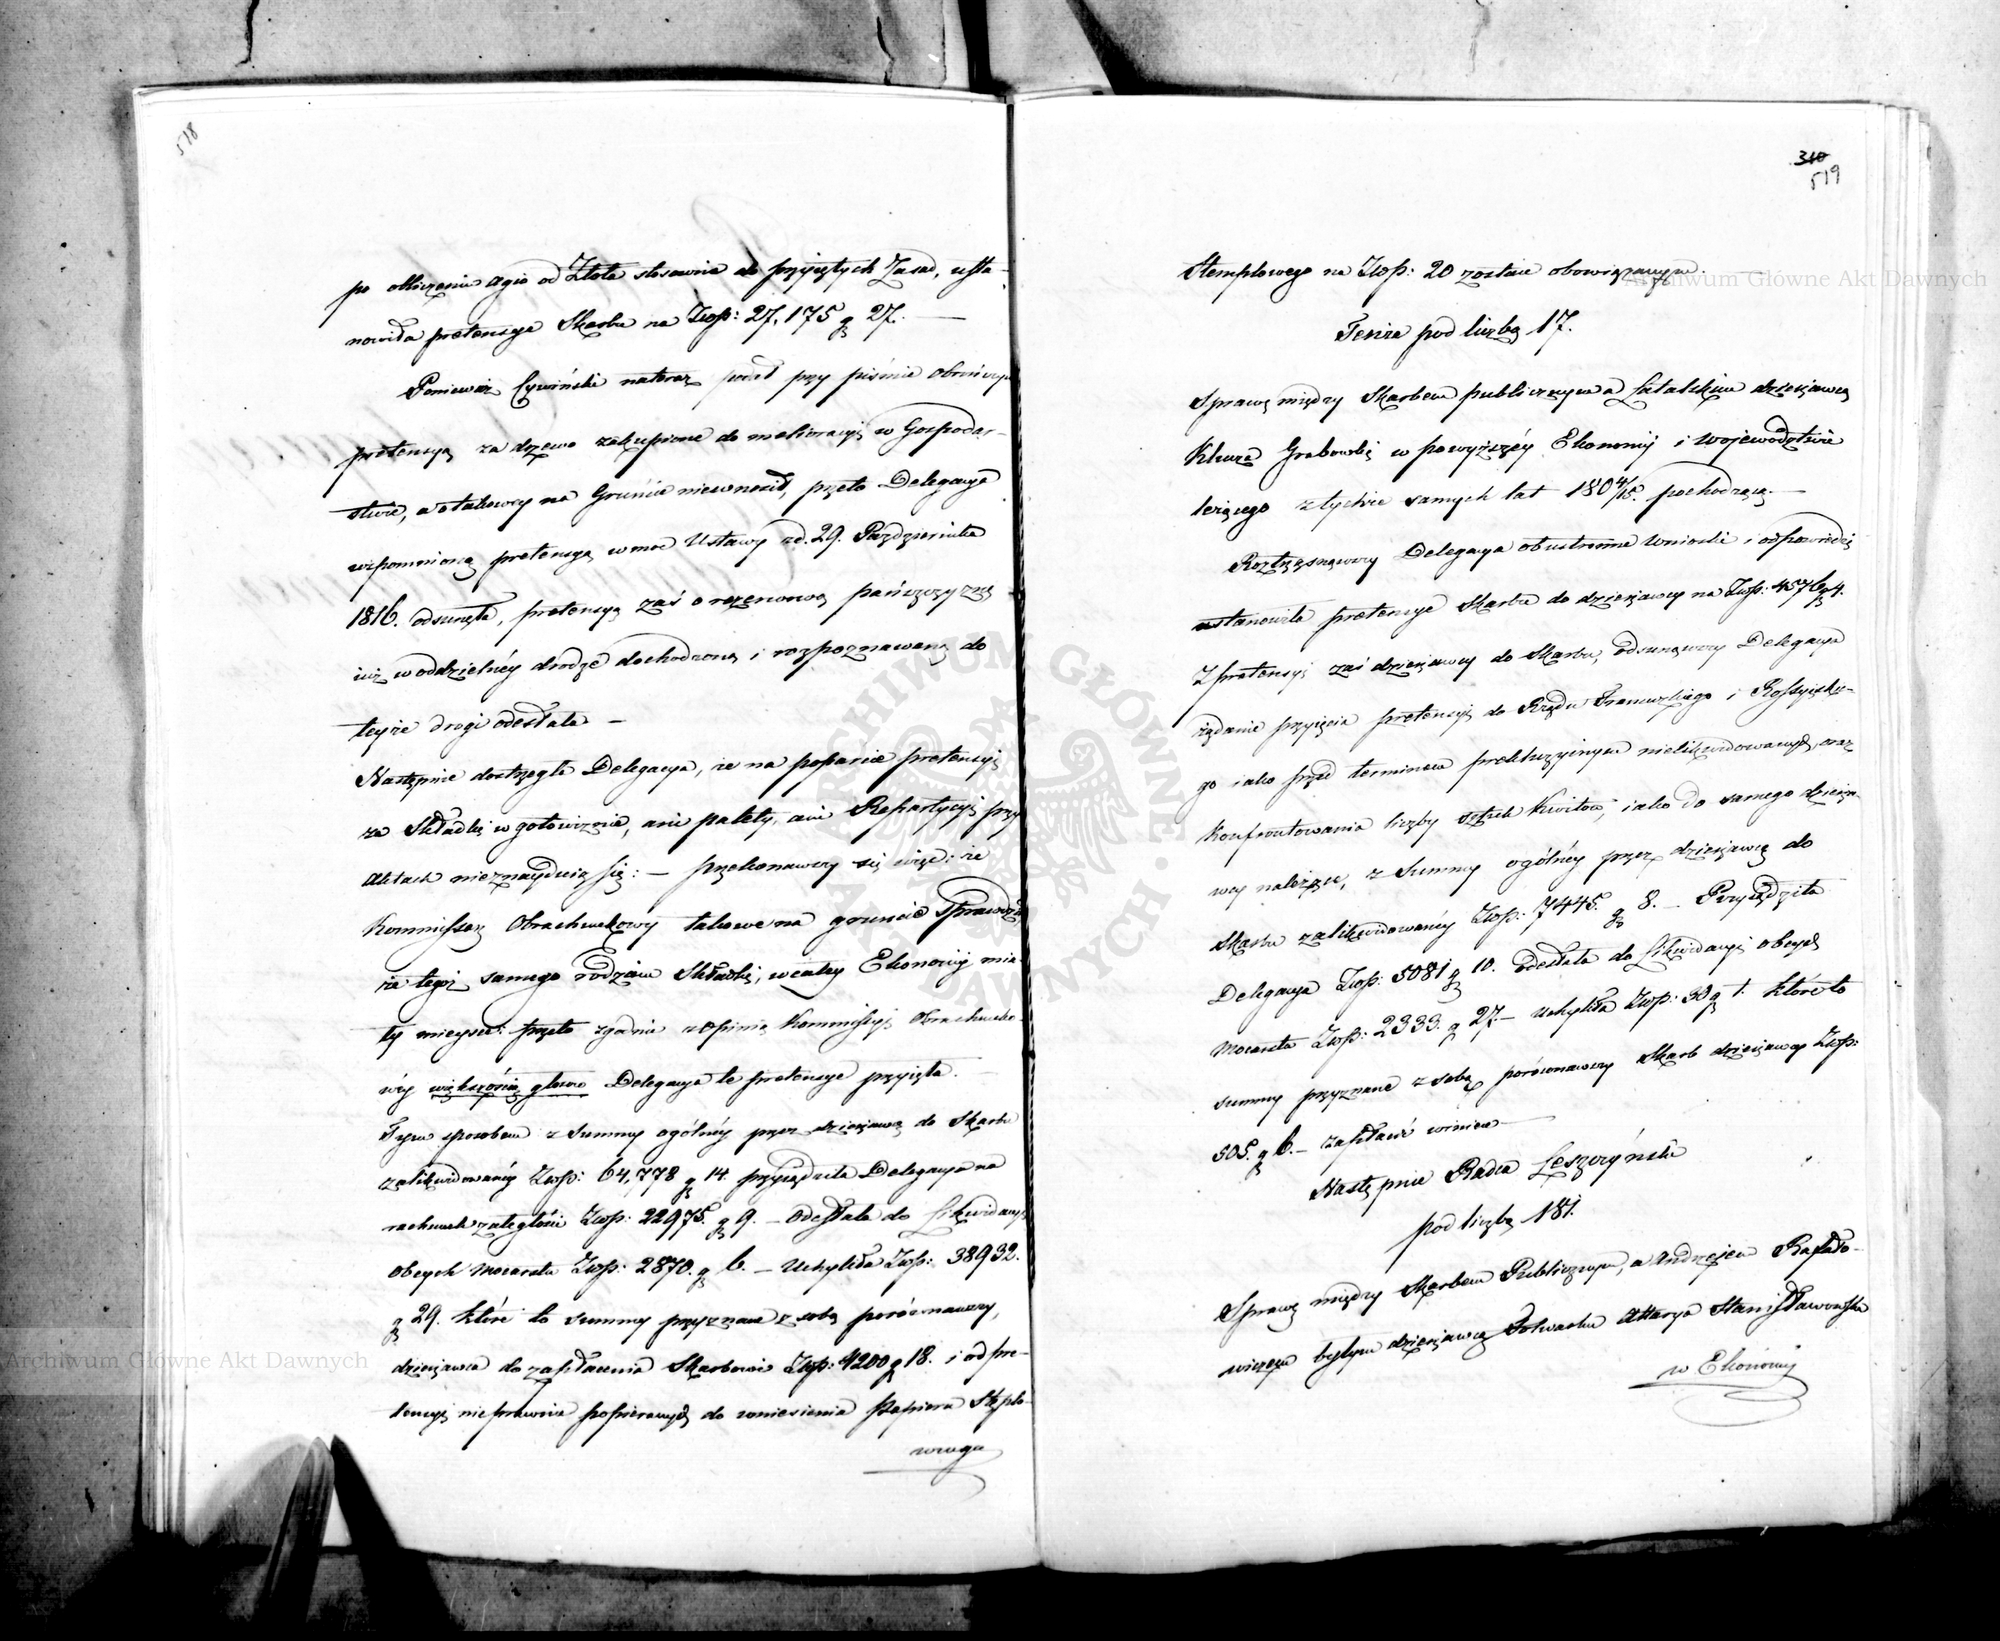 518
po obliczeniu agio od Złota stosownie do przyiętych Zasad, usta-
nowiła pretensye Skarbu na Złop: 27,175 gr 27. —
Ponieważ Cywiński nateraz podał przy piśmie obrończym
pretensyą za drzewo zakupione do melioracyi w Gospodar-
stwie, a takowey na Gruncie niewnosił, przeto Delegacya
wspomnioną pretensyą w moc Ustawy z d. 29. Października
1816. odsunęła, pretensyą zaś o rezerwową pańszczyznę
iuż w oddzielnéy drodze dochodzoną i rozpoznawaną do
teyże drogi odesłała —
Następnie dostrzegła Delegacya, że na poparcie pretensyi
za Składkę w gotowiznie, ani palety, ani Repartycyi przy
Aktach nieznayduią się: — przekonawszy się więc: że
Kommissarz Obrachunkowy takowe na gruncie sprawdził
że tegoż samego rodzaiu Składki, w całey Ekonomij mia-
ły mieysce: przeto zgodnie z opinią Kommissyi Obrachunko-
wéy większością głosów Delegacya te pretensye przyięła. —
Tym sposobem z summy ogólnéy przez dzierżawcę do Skarbu
zalikwidowanéy Złop: 64,778 gr 14. przysądziła Delegacya na
rachunek zaległości Złop: 22975. gr 9. — Odesłała do Likwidacyi
obcych mocarstw Złop: 2870. gr 6. — Uchyliła Złop: 38932.
gr 29. które to summy przyznane z sobą porównawszy,
dzierżawca do zapłacenia Skarbowi Złop: 4200 gr 18. i od pre-
tensyi nieprawnie popieranych do wniesienia Papieru Stęplo-
wego
310
519
Stemplowego na Złop: 20 zostaie obowiązanym. —
Tenże pod liczbą 17.
Sprawę między Skarbem publicznym a Latalskim dzierżawcą
Klucza Grabowki w powyższéy Ekonomij i Województwie
leżącego z tychże samych lat 180 4/15. pochodzącą. —
Roztrząsnąwszy Delegacya obustronne wnioski i odpowiedzi
ustanowiła pretensye Skarbu do dzierżawcy na Złop: 4576 gr 4.
Z pretensyi zaś dzierżawcy do Skarbu, odsunąwszy Delegacya
żądanie przyięcia pretensyi do Rządu Francuzkiego i Rossyiskie-
go iako przed terminem prekluzyinym nielikwidowanych, oraz
Konfrontowania liczby sztuk Kwitów, iako do samego dzierża-
wcy należące, z Summy ogólnéy przez dzierżawcę do
Skarbu zalikwidowanéy Złop: 7445. gr 8. — Przysądziła
Delegacya Złop: 5081 gr 10. odesłała do Likwidacyi obcych
Mocarstw Złop: 2333. gr 27. — Uchyliła Złop: 30 gr 1. które to
summy przyznane z sobą porównawszy Skarb dzierżawcy Złop:
505. gr 6. — zapłacić winien —
Następnie Radca Leszczyński
pod liczbą 181.
Sprawę między Skarbem Publicznym, a Andrzeiem Rafało-
wiczem byłym dzierżawcą Folwarku Marya Stanisławowska
w Ekonomij